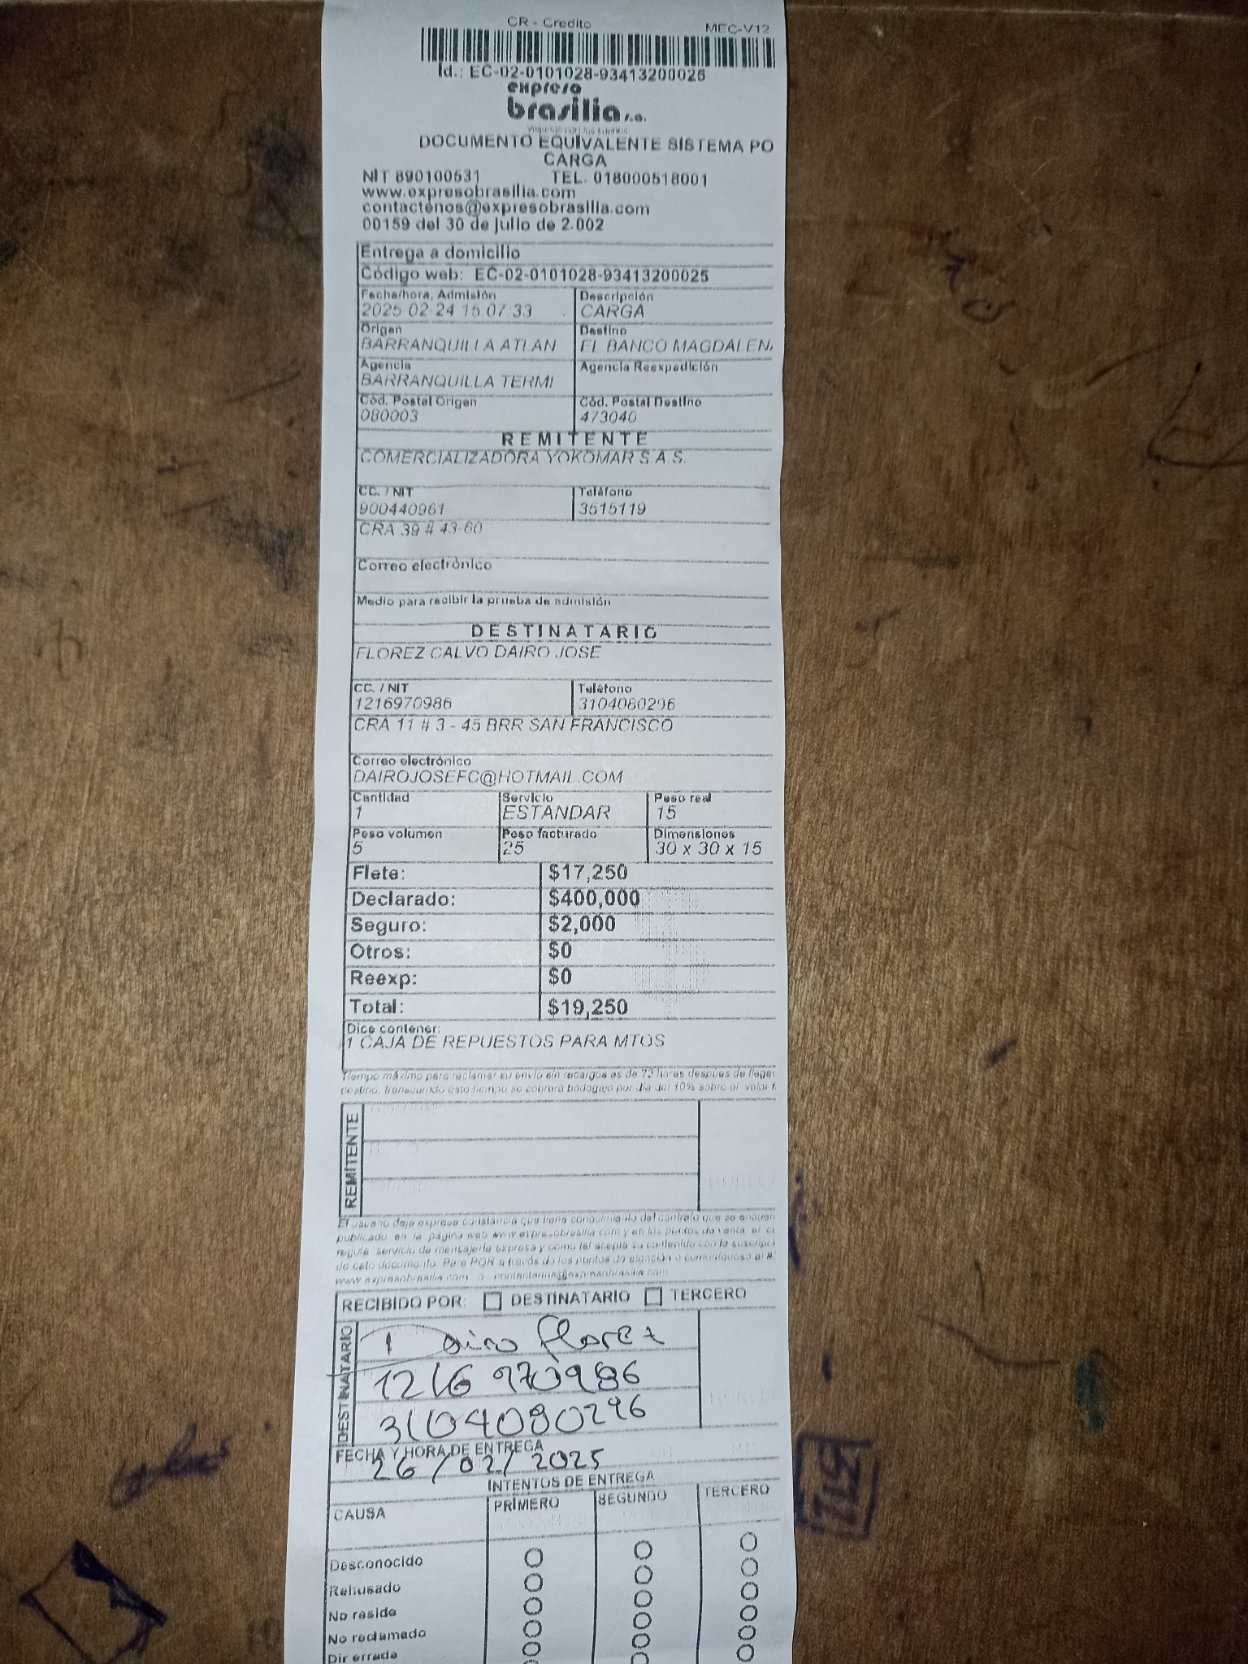 CR - Credito MEC-V12
Id.: EC-02-0101028-93413200025
expreso
brasilia s.a.
DOCUMENTO EQUIVALENTE SISTEMA PO
CARGA
NIT 890100531 TEL. 018000518001
www.expresobrasilia.com
contactenos@expresobrasilia.com
00159 del 30 de julio de 2.002
Entrega a domicilio
Código web: EC-02-0101028-93413200025
Fecha/hora, Admisión Descripción
2025 02 24 15:07:33 CARGA
Origen Destino
BARRANQUILLA ATLAN EL BANCO MAGDALENA
Agencia Agencia Reexpedición
BARRANQUILLA TERMI
Cód. Postal Origen Cód. Postal Destino
080003 473040
REMITENTE
COMERCIALIZADORA YOKOMAR S.A.S.
CC. / NIT Teléfono
900440961 3515119
CRA 39 # 43-60
Correo electrónico
Medio para recibir la prueba de admisión
DESTINATARIO
FLOREZ CALVO DAIRO JOSE
CC. / NIT Teléfono
1216970986 3104080296
CRA 11 # 3 - 45 BRR SAN FRANCISCO
Correo electrónico
DAIROJOSEFC@HOTMAIL.COM
Cantidad Servicio Peso real
1 ESTANDAR 15
Peso volumen Peso facturado Dimensiones
5 25 30 x 30 x 15
Flete: $17,250
Declarado: $400,000
Seguro: $2,000
Otros: $0
Reexp: $0
Total: $19,250
Dice contener:
1 CAJA DE REPUESTOS PARA MTOS
Tiempo máximo para reclamar su envío sin recargos es de 72 horas después de llegar
destino, transcurrido este tiempo se cobrará bodegaje por día del 10% sobre el valor f
REMITENTE
El usuario deja expresa constancia que tiene conocimiento del contrato que se encuen
publicado en la página web www.expresobrasilia.com y en los puntos de venta, el c
regula servicio de mensajería expresa y como tal acepta su contenido con la suscripci
de este documento. Para PQR a través de los puntos de atención o comuníquese al #
www.expresobrasilia.com o contactenos@expresobrasilia.com
RECIBIDO POR: DESTINATARIO TERCERO
DESTINATARIO
Dairo florez
1216 970986
3104080296
FECHA Y HORA DE ENTREGA
26/02/2025
INTENTOS DE ENTREGA
CAUSA PRIMERO SEGUNDO TERCERO
Desconocido
Rehusado
No reside
No reclamado
Dir errada